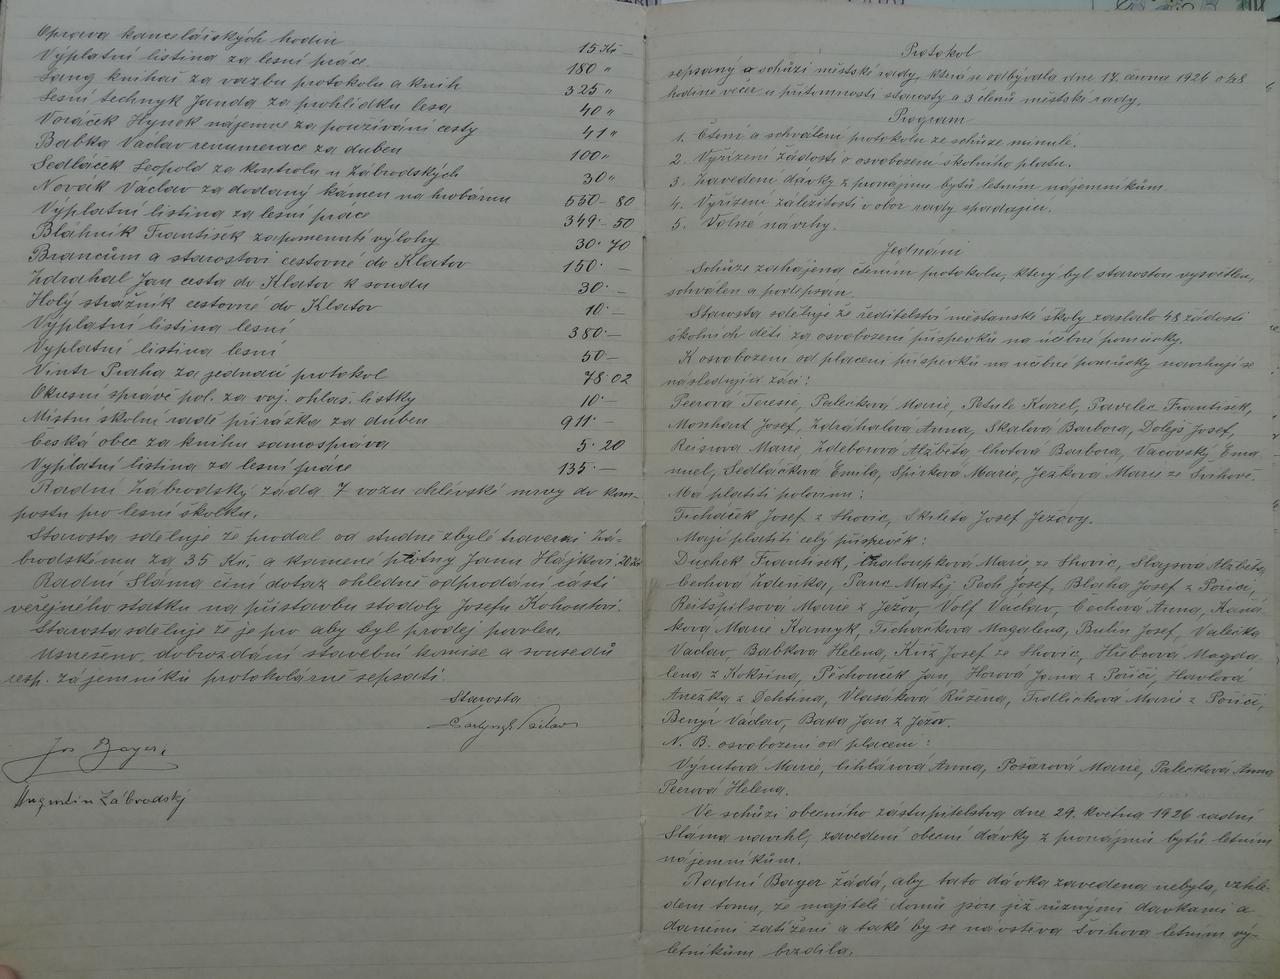 Oprava kancelářských hodin 15 Kč —
Výplatní listina za lesní práce 180 "
Lang knihař za vazbu protokolu a knih 325 "
Lesní technyk Janda za prohlídku lesa 40 "
Voráček Hynek nájemné za používání cesty 41 "
Babka Václav renumerace za duben 100 "
Sedláček Leopold za kontrolu u Zábrodských 30 "
Novák Václav za dodaný kámen na hrobárnu 550 - 80
Výplatní listina za lesní práce 349 - 50
Bláhník František zapomenuté výlohy 30 · 70
Brancům a starostovi cestovné do Klatov 150 · —
Zdráhal Jan cesta do Klatov k soudu 30 · —
Holý strážník cestovné do Klatov 10 · —
Výplatní listina lesní 380 · —
Výplatní listina lesní 50 —
Vintr Praha za jednací protokol 78 · 02
Okresní správě pol. za voj. ohlaš. lístky 10 · —
Místní školní radě přirážka za duben 911 · —
Česká obec za knihu samospráva 5 · 20
Výplatní listina za lesní práce 135 · —
Radní Zábrodský žádá 7 vozů chlévské mrvy do kom-
postu pro lesní školku.
Starosta sděluje že prodal od studně zbylé traversi Zá-
brodskému za 35 Kč, a kamené plotny Janu Hájkovi 20 Kč
Radní Sláma činí dotaz ohledně odprodání části
veřejného statku na přístavbu stodoly Josefu Kohoutovi.
Starosta sděluje že je pro aby byl prodej povolen.
Usnešeno, dobrozdání stavební komise a sousedů
resp. zájemníků protokolárně sepsati.
Starosta
Václav
Jos Bayer
Augustin Zábrodský
Protokol
sepsaný o schůzi městské rady, která se odbývala dne 17. června 1926 o 1/2 8
hodině večer u přítomnosti starosty a 3 členů městské rady.
Program
1. Čtení a schválení protokolu ze schůze minulé.
2. Vyřízení žádostí o osvobození školního platu.
3. Zavedení dávky z pronájmu bytů letním nájemníkům.
4. Vyřízení záležitostí v obor rady spadající.
5. Volné návrhy.
Jednání
Schůze zahájena čtením protokolu, který byl starostou vysvětlen,
schválen a podepsán.
Starosta sděluje že ředitelství měšťanské školy zaslalo 48 žádostí
školních dětí za osvobození příspěvků na učebné pomůcky.
K osvobození od placení příspěvků na učebné pomůcky navrhují se
následující žáci:
Peerová Teresie, Palečková Marie, Petule Karel, Pavelec František,
Monhart Josef, Zdrahalova Anna, Skalova Barbora, Dolejš Josef,
Reisrova Marie, Zdeborova Alžběta, Chotova Barbora, Vacovský Ema
nuel, Sedlačkova Emila, Spirková Marie, Ježkova Marie ze Švihova.
Má platiti polovinu:
Ticháček Josef z Lhovic, Skřleta Josef Ježovy.
Mají platiti celý příspěvek:
Duchek František, Chaloupková Marie ze Lhovic, Šlajsova Alžběta,
Čechová Zdeňka, Panc Matěj, Pech Josef, Blaha Josef z Poříčí,
Reitšpilsová Marie z Ježov, Volf Václav, Čechova Anna, Kaná
kova Marie Kamyk, Tichačkova Magalena, Bulín Josef, Valečka
Vaclav, Babkova Helena, Kříž Josef ze Lhovic, Hřebcová Magda
lena z Kokšína, Pěchouček Jan, Horová Jana z Poříčí, Havlová
Anežka z Dehtína, Vlasáková Růžena, Tidličková Marie z Poříčí,
Benyr Václav, Bada Jan z Ježov.
N. B. osvobozeni od placení:
Výrutová Marie, Cihlárová Anna, Pošarová Marie, Palečková Anna
Peerová Helena.
Ve schůzi obecního zastupitelstva dne 29. května 1926 radní
Sláma navrhl, zavedení obecní dávky z pronájmů bytů letním
nájemníkům.
Radní Bayer žádá, aby tato dávka zavedena nebyla, vzhle-
dem tomu, že majitelé domů jsou již různými davkami a
daněmi zatíženi a také by se návsteva Švihova letním vý-
letníkům brzdila.